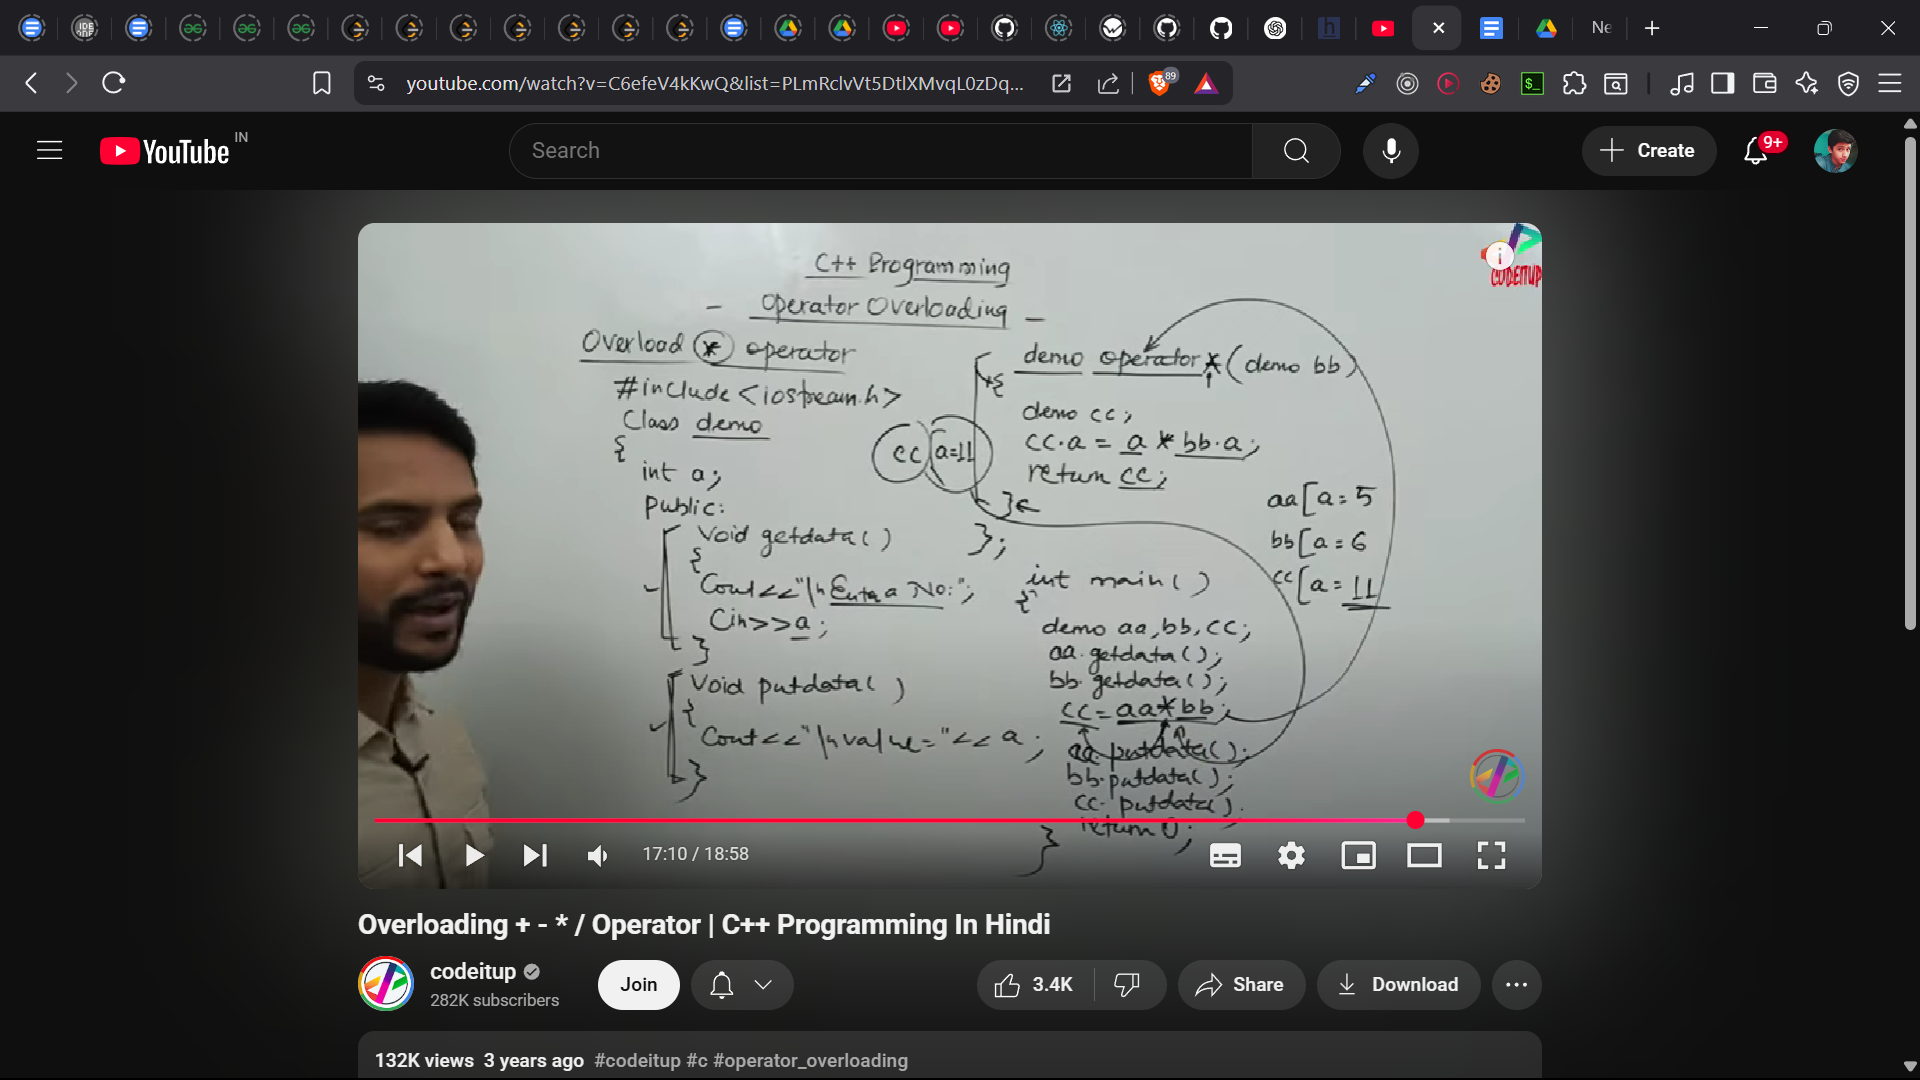 Ne
youtube.com/watch?v=C6efeV4kKwQ&list=PLmRclvVt5DtlXMvqL0zDq...
89
YouTube IN
Search
Create
9+
C++ Programming
- Operator Overloading -
Overload * operator
#include <iostream.h>
Class demo
{
int a;
Public:
Void getdata()
{
Cout<<"\n Enter a No:";
Cin>>a;
}
Void putdata()
{
Cout<<"\nvalue="<<a;
}
cc a=11
demo operator*(demo bb)
{
demo cc;
cc.a = a * bb.a;
return cc;
}
};
int main()
{
demo aa,bb,cc;
aa.getdata();
bb.getdata();
cc=aa*bb;
aa.putdata();
bb.putdata();
cc.putdata().
return 0;
}
aa[a=5
bb[a=6
cc[a=11
CODEITUP
17:10 / 18:58
Overloading + - * / Operator | C++ Programming In Hindi
codeitup
282K subscribers
Join
3.4K
Share
Download
132K views 3 years ago #codeitup #c #operator_overloading